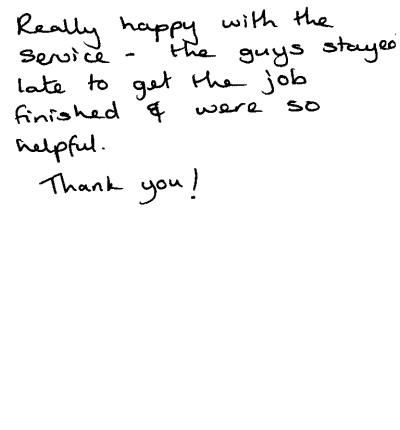 Really happy with the
service - the guys stayed
late to get the job
finished & were so
helpful.
Thank you!